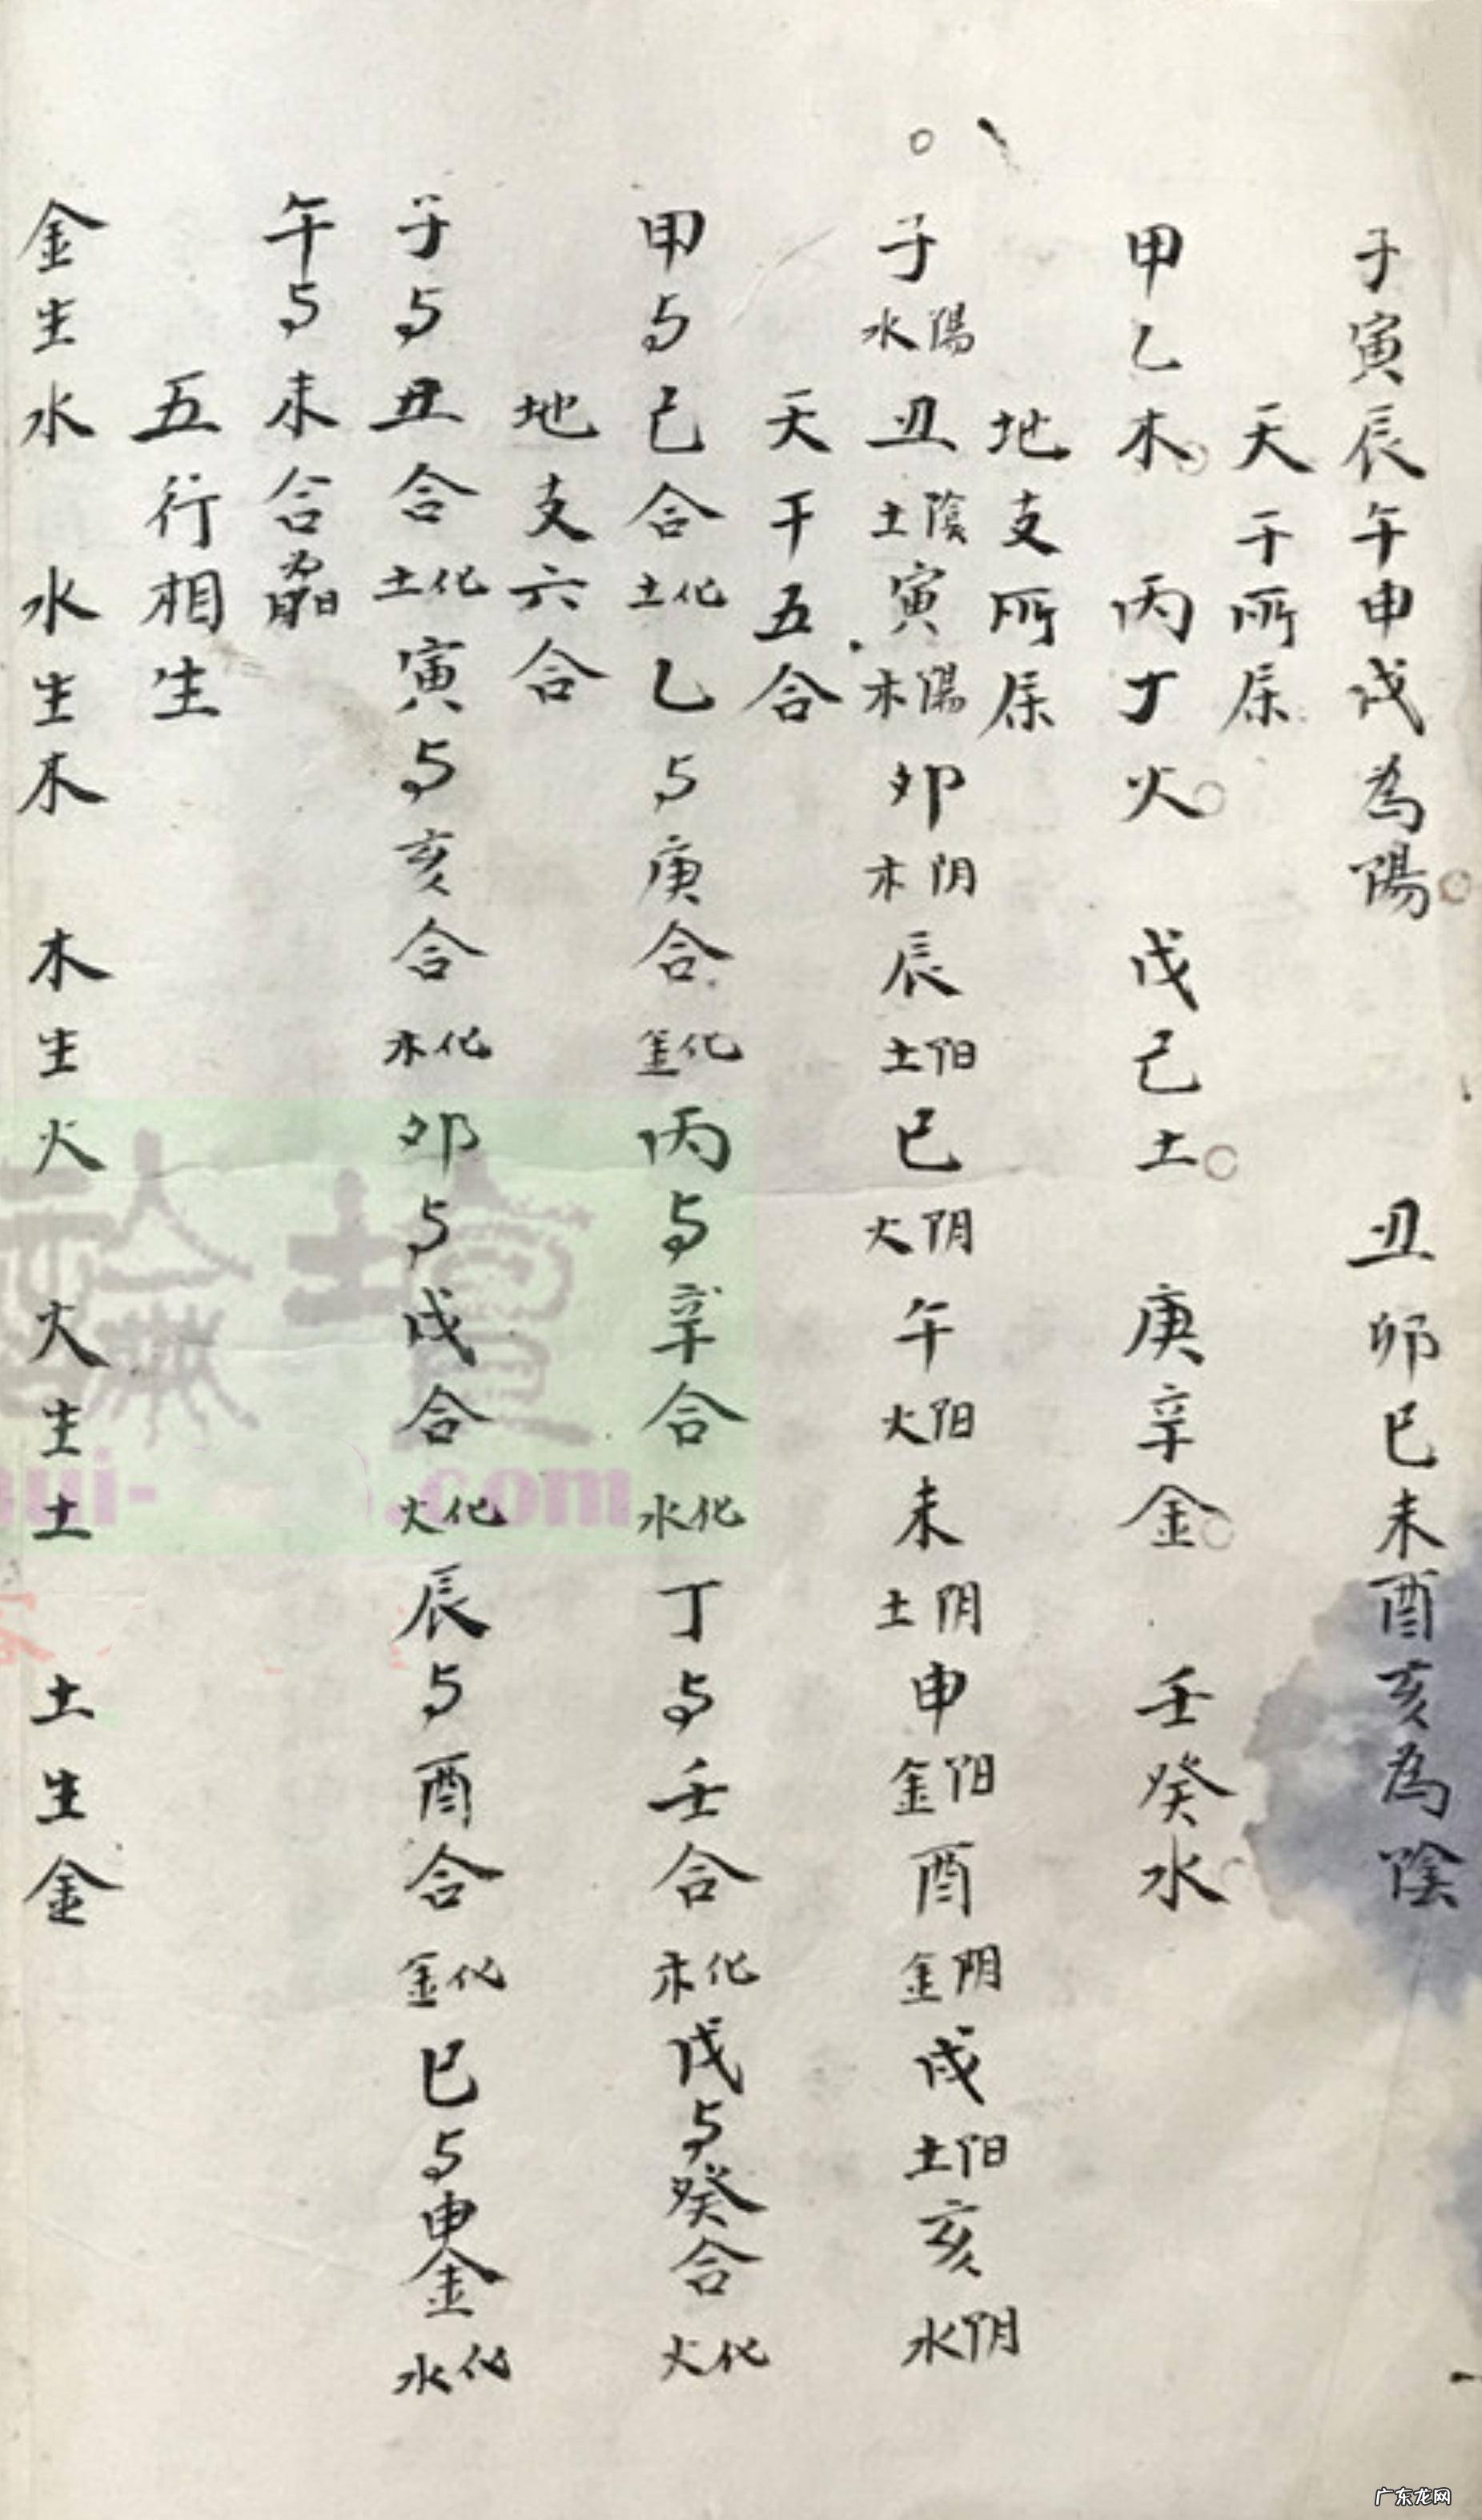 子寅辰午申戌為陽 丑卯巳未酉亥為陰
天干所属
甲乙木 丙丁火 戊己土 庚辛金 壬癸水
地支所属
子陽水丑陰土寅陽木卯阴木辰阳土巳阴火午阳火未阴土申阳金酉阴金戌阳土亥阴水
天干五合
甲与己合化土乙与庚合化金丙与辛合化水丁与壬合化木戊与癸合化火
地支六合
子与丑合化土寅与亥合化木卯与戌合化火辰与酉合化金巳与申金化水
午与未合為日月
五行相生
金生水 水生木 木生火 火生土 土生金
.com
广东龙网